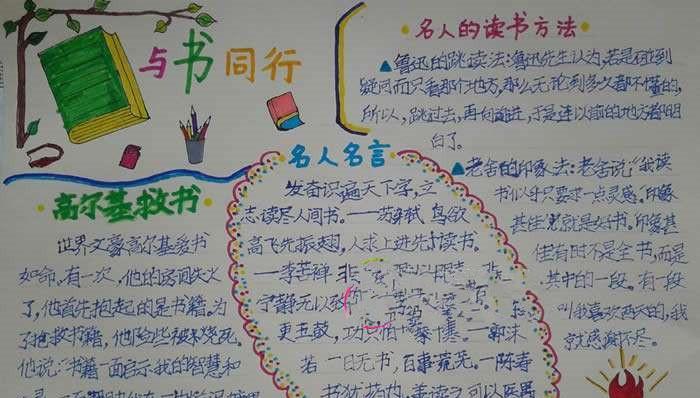 与书同行
高尔基救书
世界文豪高尔基爱书
如命。有一次，他的房间失火
了，他首先抱起的是书籍。为
了抢救书籍，他险些被火烧死。
他说："书籍一面启示我的智慧和
名人名言
发奋识遍天下字，立
志读尽人间书。——苏轼 鸟欲
高飞先振翅，人求上进先读书。
—李苦禅 非
宁静无以致
更五鼓，功
若一日无书，百事荒芜。—陈寿
书犹药也，善读之可以医愚
名人的读书方法
▲鲁迅的跳读法：鲁迅先生认为，若是碰到
疑问而只看那个地方，那么无论到多久都不懂的，
所以，跳过去，再向前进，于是连以前的地方都明
白了。
▲老舍的印象法：老舍说"我读
书似乎只要求一点灵感。"印象
甚佳便就是好书。印象甚
佳有时不是全书，而是
其中的一段。有一段
叫我喜欢两天的，我
就感谢不尽。